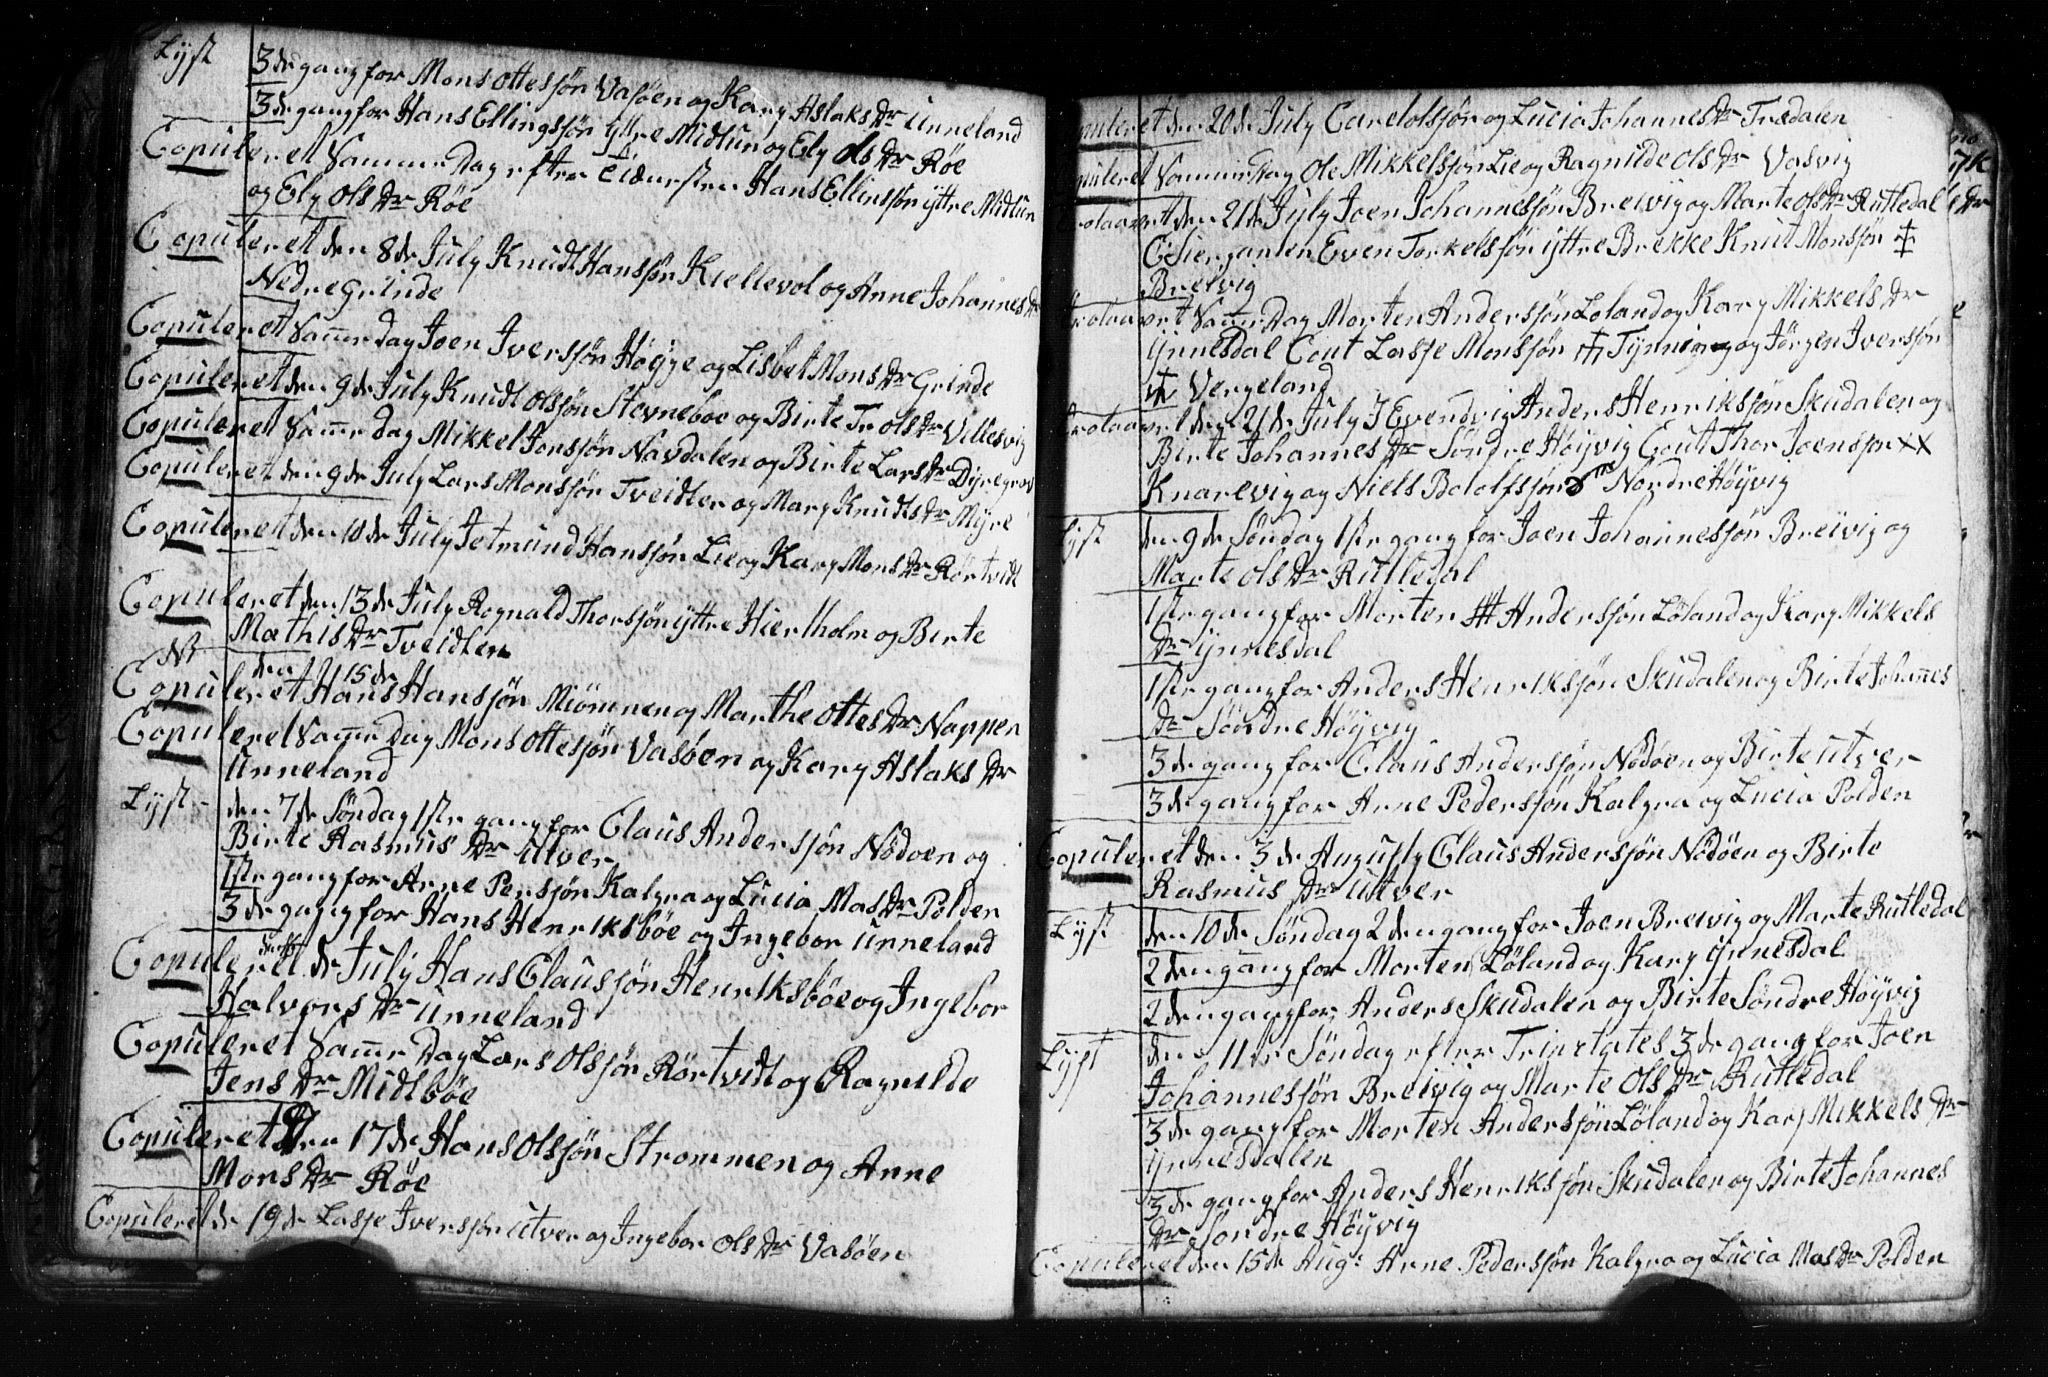 Lyst 3de gang for Mons Ottessøn Vasøen og Kary Aslaks Dr Unneland
3de gang for Hans Ellingssøn Yttre Midtun og Ely Ols Dr Røe
Copuleret Samme Dag efter Hans Ellinssøn Yttre Midtun
og Ely Ols Dr Røe
Copuleret den 8de July Knudt Hanssøn Kiellevol og Anne Johannes Dr
Nedre Grinde
Copuleret Samme dag Joen Iverssøn Høyye og Lisbet Mons Dr Grinde
Copuleret den 9de July Knudt Olssøn Stevneboe og Birte Trols Dr Villesvig
Copuleret Samme Dag Mikkel Jonssøn Navdalen og Birte Lars Dr Dyregrov
Copuleret den 9de July Lars Monssøn Tveidten og Mary Knudts Dr Myre
Copuleret den 10de July Jetmund Hanssøn Lie og Kary Mons Dr Rørtvidt
Copuleret den 13de July Rognald Thorssøn yttre Hiertholm og Birte
Mathis Dr Tveidten
Nt den 15de
Copuleret Hans Hanssøn Miømmen og Marthe Ottes Dr Nappen
Copuleret Samme Dag Mons Ottessøn Vasøen og Kary Aslaks Dr
Unneland
Lyst den 7de Søndag 1ste gang for Claus Anderssøn Nødøen og
Birte Rasmus Dr Utver
1ste gang for Arne Perssøn Kalgra og Lucia Mas Dr Polden
3de gang for Hans Henriksbøe og Ingebor Unneland
Copuleret de July Hans Claussøn Henriksbøe og Ingebor
Halvors Dr Unneland
Copuleret Samme Dag Lars Olssøn Rørtvidt og Ragnilde
Jens Dr Midtbøe
Copuleret den 17de Hans Olssøn Strømmen og Anne
Mons Dr Røe
Copuleret de 19de Lasse Iverssøn Utver og Ingebor Ols Dr Vasøen
Copuleret den 20de July Carl Olssøn og Lucia Johannes Dr Trædalen
Copuleret Samme Dag Ole Mikkelssøn Lie og Ragnilde Ols Dr Vasvig
Trolaavet den 21de July Joen Johannessøn Breivig og Marte Ols Dr Rutledal
Even Torkelssøn Yttre Brekke Knut Monssøn ‡
Breivig
Trolaavet Samme Dag Morten Anderssøn Løland og Kary Mikkels Dr
Ynnesdal Cout Lasse Monssøn Tynning og Jørgen Iverssøn
Vergeland
Trolaavet den 21de July I Evendvig Anders Henrikssøn Skudalen og
Birte Johannes Dr Søndre Høyvig Cout Thor Joenssøn XX
Knarevig og Niels Bolofssøn Nordre Høyvig
Lyst den 9de Søndag 1ste gang for Joen Johannessøn Breivig og
Marte Ols Dr Rutledal
1ste gang for Morten Anderssøn Løland og Kary Mikkels
Dr Ynnesdal
1ste gang for Anders Henrikssøn Skudalen og Birte Johannes
Dr Søndre Høyvig
3de gang for Claus Anderssøn Nødøen og Birte Utver
3de gang for Arne Pederssøn Kalgra og Lucia Polden
Copuleret den 3de Augusty Claus Anderssøn Nødøen og Birte
Rasmus Dr Utver
Lyst den 10de Søndag 2den gang for Joen Breivig og Marte Rutledal
2den gang for Morten Løland og Kary Ynnesdal
2den gang for Anders Skudalen og Birte Søndre Høyvig
Lyst den 11te Søndag efter Trinetates 3de gang for Joen
Johannessøn Breivig og Marte Ols Dr Rutledal
3de gang for Morten Anderssøn Løland og Kary Mikkels Dr
Ynnesdalen
3de gang for Anders Henrikssøn Skudalen og Birte Johannes
Dr Søndre Høyvig
Copuleret den 15de Aug: Arne Pederssøn Kalgra og Lucia Mas Dr Polden